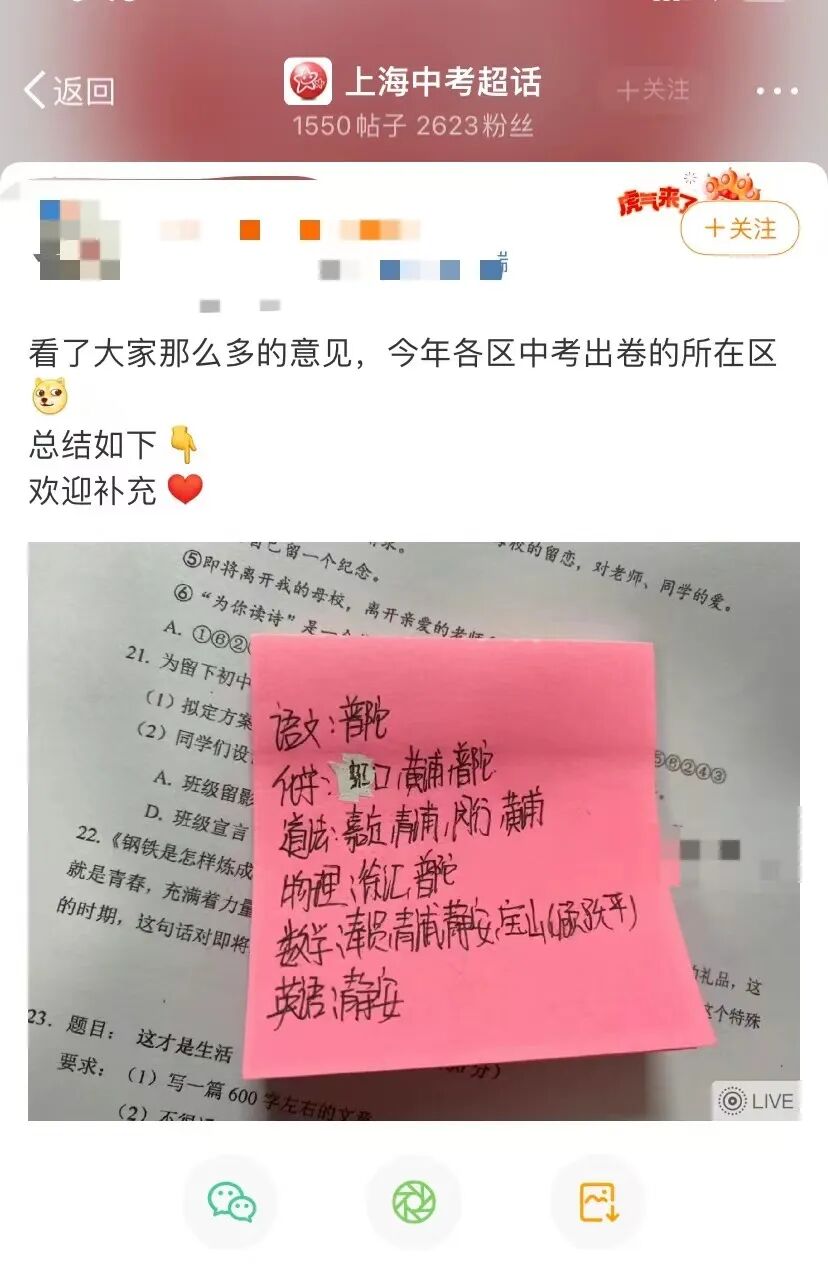 返回
上海中考超话
+关注
1550帖子 2623粉丝
虎气来了
+关注
看了大家那么多的意见，今年各区中考出卷的所在区
总结如下
欢迎补充
自己留一个纪念。
校的留恋，对老师、同学的爱。
⑤即将离开我的母校，离开亲爱的老师
⑥“为你读诗”是一个
A. ①⑥②
⑤⑥②④③
21. 为留下初中
（1）拟定方案
（2）同学们设
A. 班级留影
D. 班级宣言
22.《钢铁是怎样炼成
就是青春，充满着力量
的时期，这句话对即将
语文：普陀
化学：虹口 黄浦 普陀
道法：嘉定 青浦，闵行 黄浦
物理：徐汇 普陀
数学：奉贤 青浦 静安，宝山(
平)
英语：静安
礼品，这
这个特殊
23. 题目：这才是生活
要求：（1）写一篇600字左右的文章
分）
（2）不得
LIVE